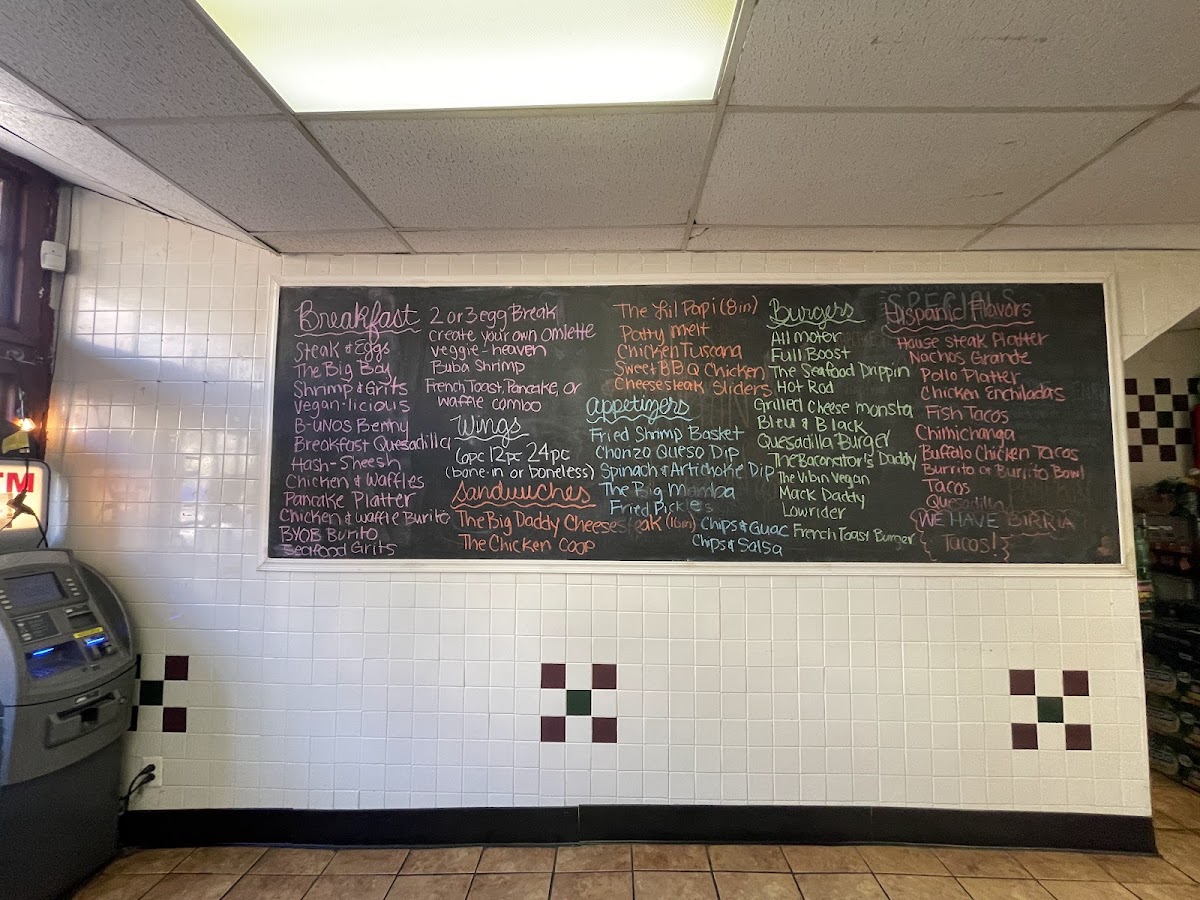 Breakfast
Steak & Eggs
The Big Boy
Shrimp & Grits
Vegan-licious
B-UNOS Benny
Breakfast Quesadilla
Hash-Sheesh
Chicken & Waffles
Pancake Platter
Chicken & Waffle Burito
BYOB Burito
Seafood Grits
2 or 3 egg Break
create your own omlette
veggie-heaven
Buba Shrimp
French Toast, Pancake, or
waffle combo
Wings
6pc 12pc 24pc
(bone-in or boneless)
Sandwiches
The Big Daddy Cheesesteak (16in)
The Chicken Coop
The Lil Papi (8in)
Patty melt
Chicken Tuscana
Sweet BBQ Chicken
Cheesesteak Sliders
Appetizers
Fried Shrimp Basket
Chorizo Queso Dip
Spinach & Artichoke Dip
The Big Mamba
Fried Pickles
Chips & Guac
Chips & Salsa
Burgers
All motor
Full Boost
The Seafood Drippin
Hot Rod
Grilled Cheese monsta
Bleu & Black
Quesadilla Burger
The Baconator's Daddy
The Vibin Vegan
Mack Daddy
Lowrider
French Toast Burger
SPECIALS
Hispanic Flavors
House steak Platter
Nachos Grande
Pollo Platter
Chicken Enchiladas
Fish Tacos
Chimichanga
Buffalo Chicken Tacos
Burrito or Burrito Bowl
Tacos
Quesadilla
WE HAVE BIRRIA
Tacos!